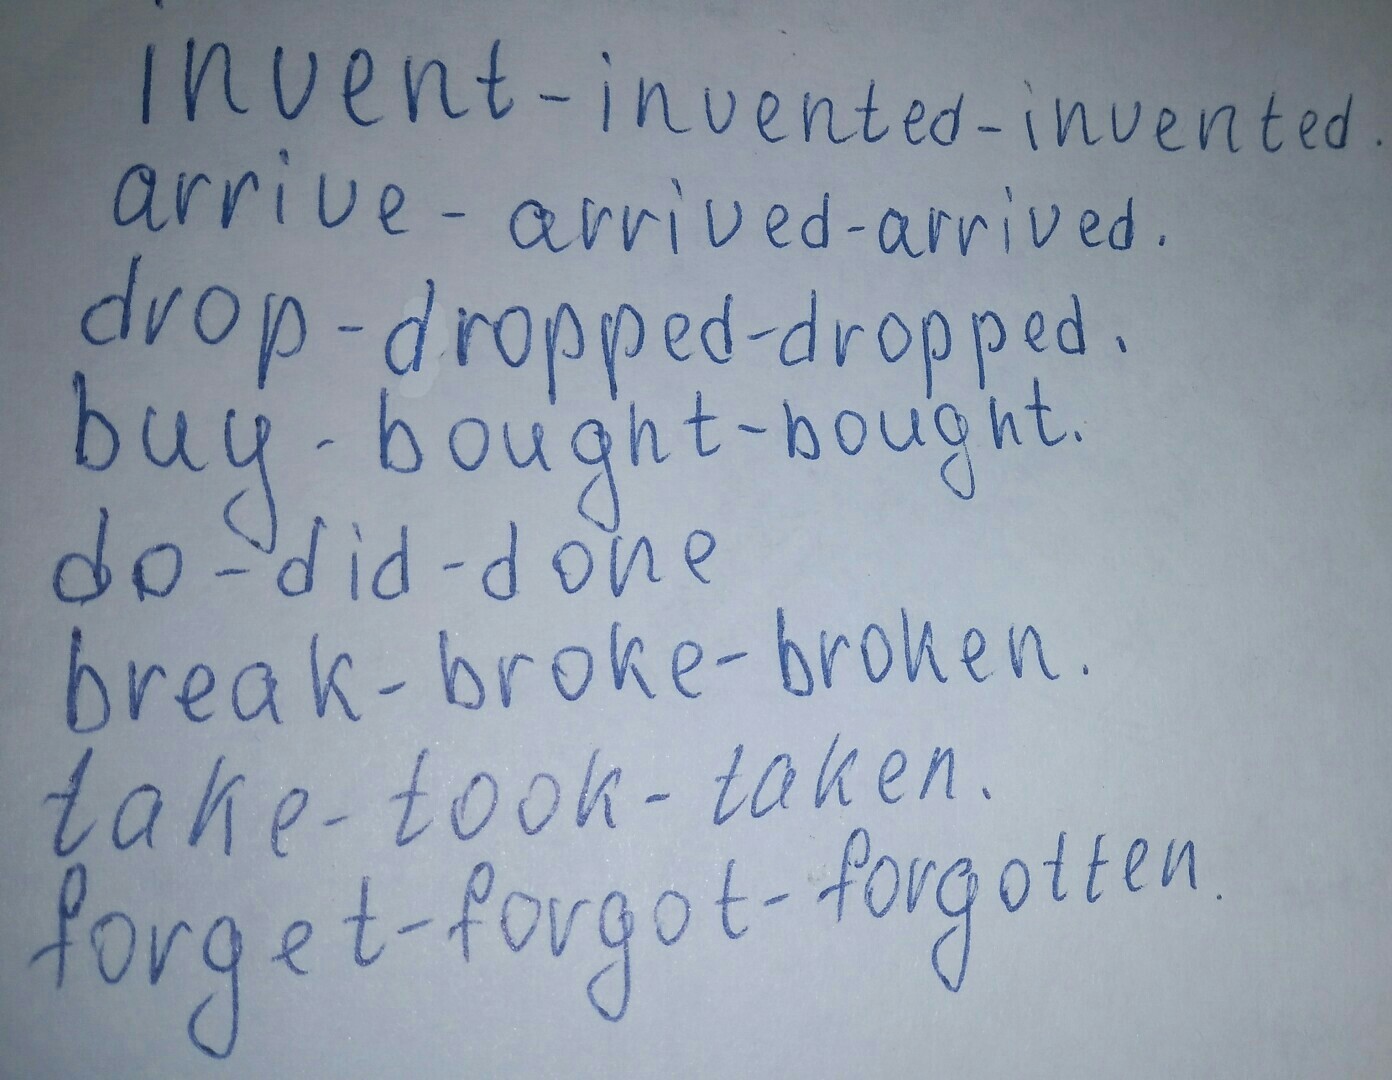 invent-invented-invented.
arrive-arrived-arrived.
drop-dropped-dropped.
buy-bought-bought.
do-did-done
break-broke-broken.
take-took-taken.
forget-forgot-forgotten.